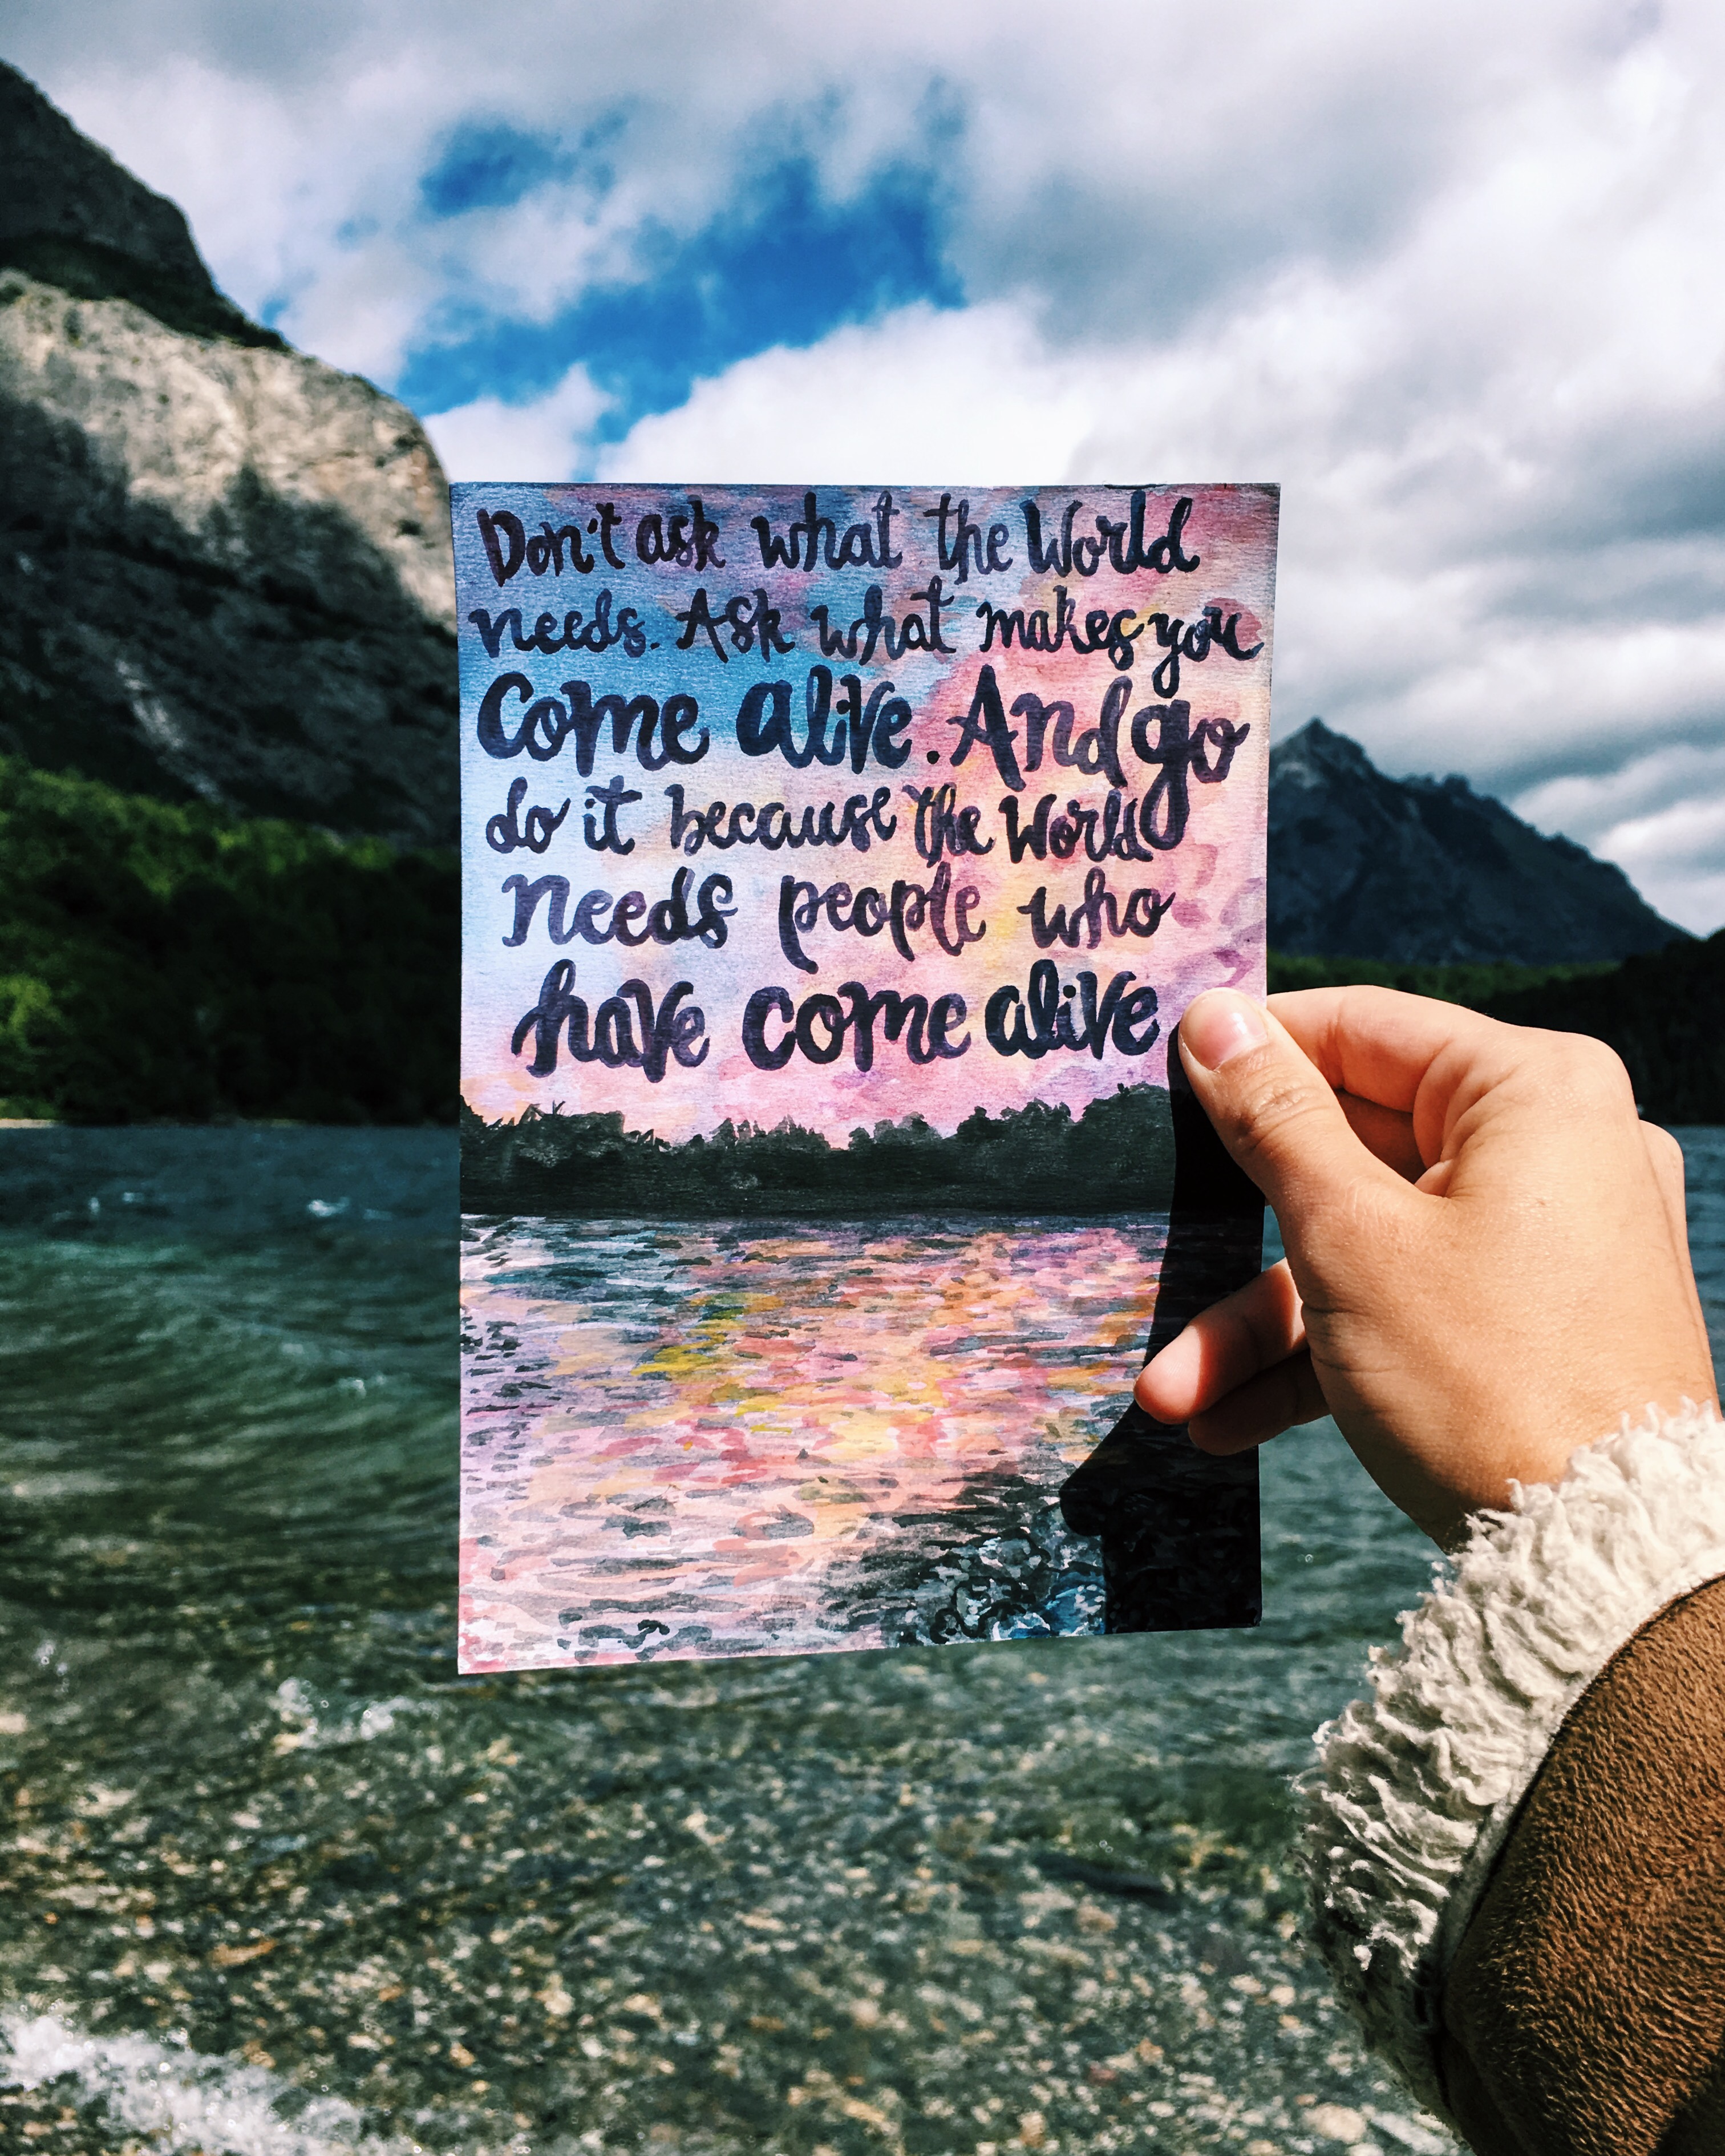 Don't ask what the World
needs. Ask what makes you
Come alive. And go
do it because the World
needs people who
have come alive